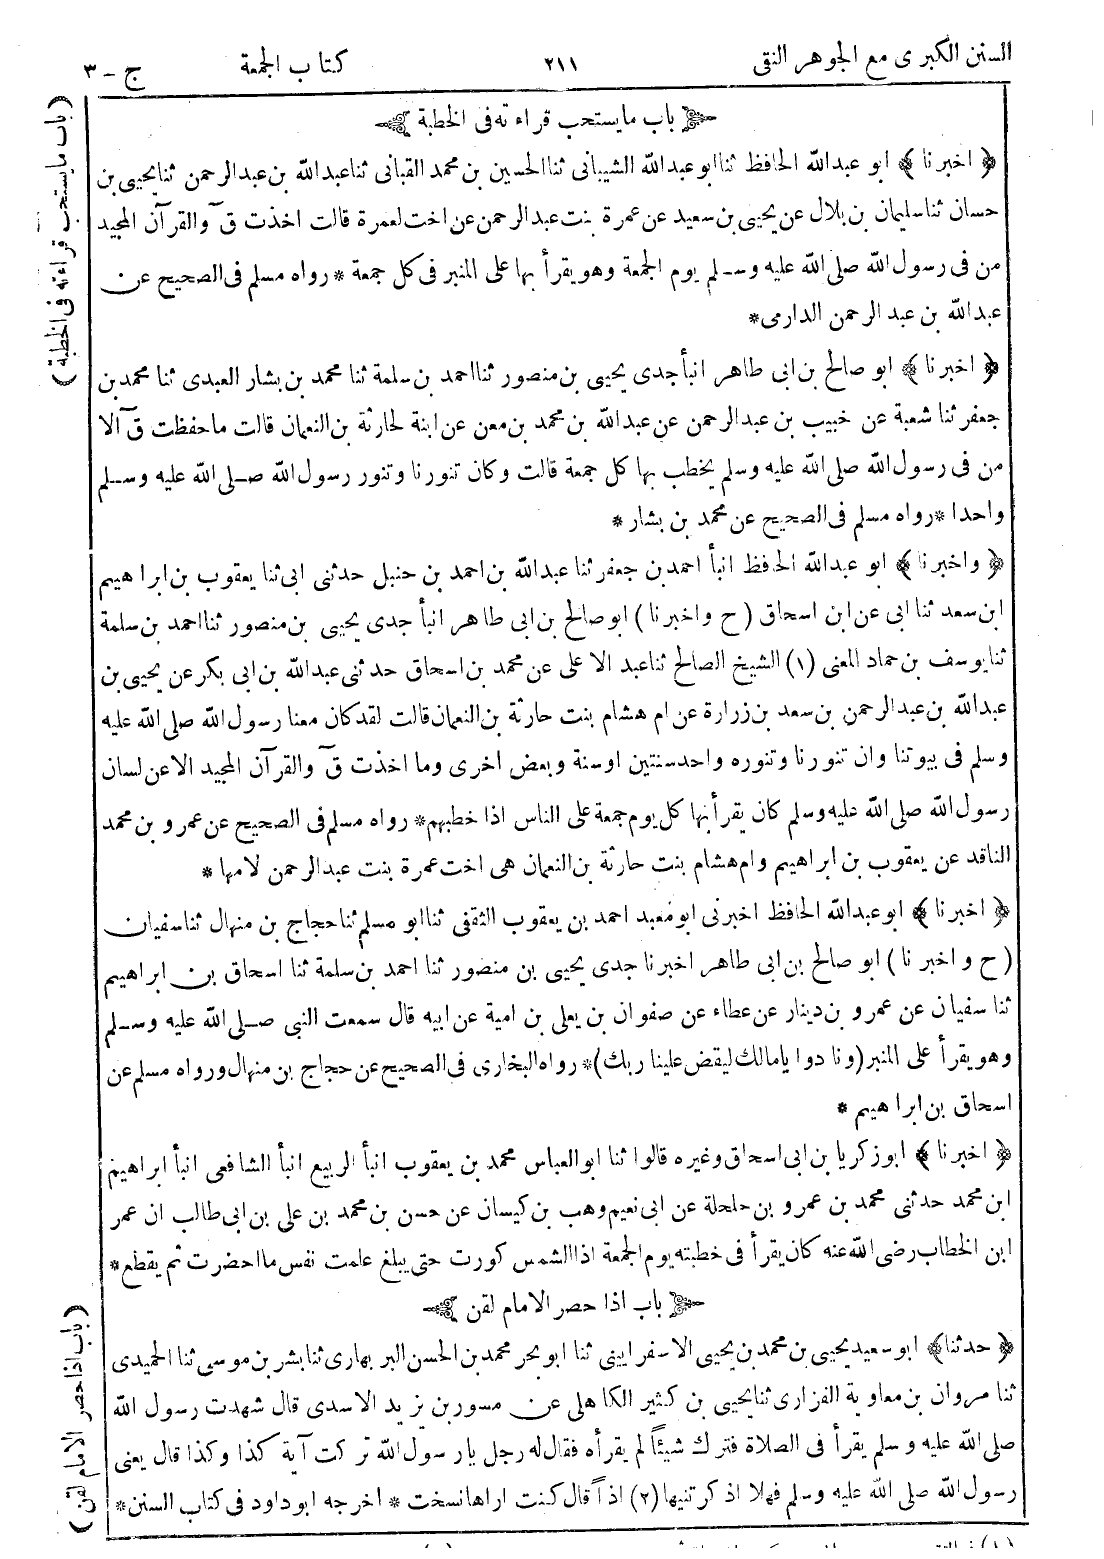 السنن الكبرى مع الجوهر النقى ٢١١ كتاب الجمعة ج - ٣
باب ما يستحب قراءته فى الخطبة
﴿ اخبرنا ﴾ ابو عبدالله الحافظ ثنا ابو عبدالله الشيبانى ثنا الحسين بن محمد القبانى ثنا عبدالله بن عبدالرحمن ثنا يحيى بن
حسان ثنا سليمان بن بلال عن يحيى بن سعيد عن عمرة بنت عبدالرحمن عن اخت لعمرة قالت اخذت قٓ والقرآن المجيد
من فى رسول الله صلى الله عليه وسلم يوم الجمعة وهو يقرأ بها على المنبر فى كل جمعة * رواه مسلم فى الصحيح عن
عبدالله بن عبد الرحمن الدارمى *
﴿ اخبرنا ﴾ ابو صالح بن ابى طاهر انبأ جدى يحيى بن منصور ثنا احمد بن سلمة ثنا محمد بن بشار العبدى ثنا محمد بن
جعفر ثنا شعبة عن خبيب بن عبدالرحمن عن عبدالله بن محمد بن معن عن ابنة لحارثة بن النعمان قالت ما حفظت قٓ الا
من فى رسول الله صلى الله عليه وسلم يخطب بها كل جمعة قالت وكان تنورنا وتنور رسول الله صلى الله عليه وسلم
واحدا * رواه مسلم فى الصحيح عن محمد بن بشار *
﴿ واخبرنا ﴾ ابو عبدالله الحافظ انبأ احمد بن جعفر ثنا عبدالله بن احمد بن حنبل حدثنى ابى ثنا يعقوب بن ابراهيم
ابن سعد ثنا ابى عن ابن اسحاق ( ح واخبرنا ) ابو صالح بن ابى طاهر انبأ جدى يحيى بن منصور ثنا احمد بن سلمة
ثنا يوسف بن حماد المعنى (١) الشيخ الصالح ثنا عبد الاعلى عن محمد بن اسحاق حدثنى عبدالله بن ابى بكر عن يحيى بن
عبدالله بن عبدالرحمن بن سعد بن زرارة عن ام هشام بنت حارثة بن النعمان قالت لقد كان معنا رسول الله صلى الله عليه
وسلم فى بيوتنا وان تنورنا وتنوره واحد سنتين اوسنة وبعض اخرى وما اخذت قٓ والقرآن المجيد الا عن لسان
رسول الله صلى الله عليه وسلم كان يقرأ بها كل يوم جمعة على الناس اذا خطبهم * رواه مسلم فى الصحيح عن عمرو بن محمد
الناقد عن يعقوب بن ابراهيم وام هشام بنت حارثة بن النعمان هى اخت عمرة بنت عبدالرحمن لامها *
﴿ اخبرنا ﴾ ابو عبدالله الحافظ اخبرنى ابو معبد احمد بن يعقوب الثقفى ثنا ابو مسلم ثنا حجاج بن منهال ثنا سفيان
( ح واخبرنا ) ابو صالح بن ابى طاهر اخبرنا جدى يحيى بن منصور ثنا احمد بن سلمة ثنا اسحاق بن ابراهيم
ثنا سفيان عن عمرو بن دينار عن عطاء عن صفوان بن يعلى بن امية عن ابيه قال سمعت النبى صلى الله عليه وسلم
وهو يقرأ على المنبر (ونادوا يا مالك ليقض علينا ربك) * رواه البخارى فى الصحيح عن حجاج بن منهال ورواه مسلم عن
اسحاق بن ابراهيم *
﴿ اخبرنا ﴾ ابو زكريا بن ابى اسحاق وغيره قالوا ثنا ابو العباس محمد بن يعقوب انبأ الربيع انبأ الشافعى انبأ ابراهيم
ابن محمد حدثنى محمد بن عمرو بن حلحلة عن ابى نعيم وهب بن كيسان عن حسن بن محمد بن على بن ابى طالب ان عمر
ابن الخطاب رضى الله عنه كان يقرأ فى خطبته يوم الجمعة اذا الشمس كورت حتى يبلغ علمت نفس ما احضرت ثم يقطع *
باب اذا حصر الامام لقن
﴿ حدثنا ﴾ ابو سعيد يحيى بن محمد بن يحيى الاسفرايينى ثنا ابو بحر محمد بن الحسن البربهارى ثنا بشر بن موسى ثنا الحميدى
ثنا مروان بن معاوية الفزارى ثنا يحيى بن كثير الكاهلى عن مسور بن يزيد الاسدى قال شهدت رسول الله
صلى الله عليه وسلم يقرأ فى الصلاة فترك شيئاً لم يقرأه فقال له رجل يا رسول الله تركت آية كذا وكذا قال يعنى
رسول الله صلى الله عليه وسلم فهلا اذكرتنيها (٢) اذاً قال كنت اراها نسخت * اخرجه ابو داود فى كتاب السنن *
( باب ما يستحب قراءته فى الخطبة )
( باب اذا حصر الامام لقن )